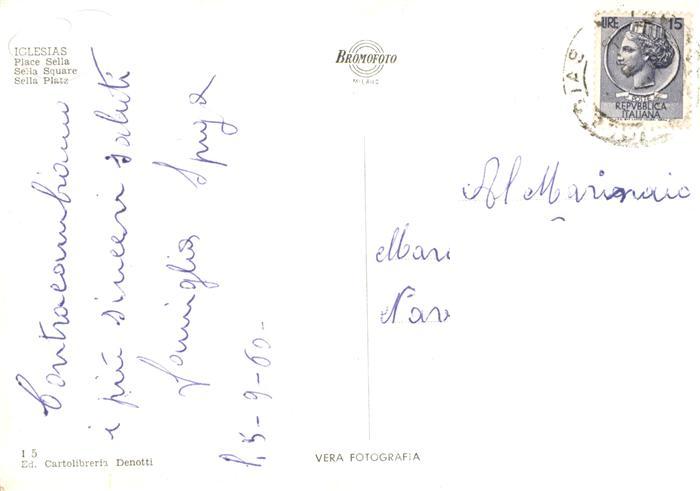 IGLESIAS
Place Sella
Sella Square
Sella Platz
BROMOFOTO
MILANO
LIRE 15
POSTE
REPVBBLICA
ITALIANA
Contracambiamo
i più sinceri saluti
famiglia Spiga
5-9-60-
Al Marinaio
Mari
Nav
I 5
Ed. Cartolibreria Denotti
VERA FOTOGRAFIA